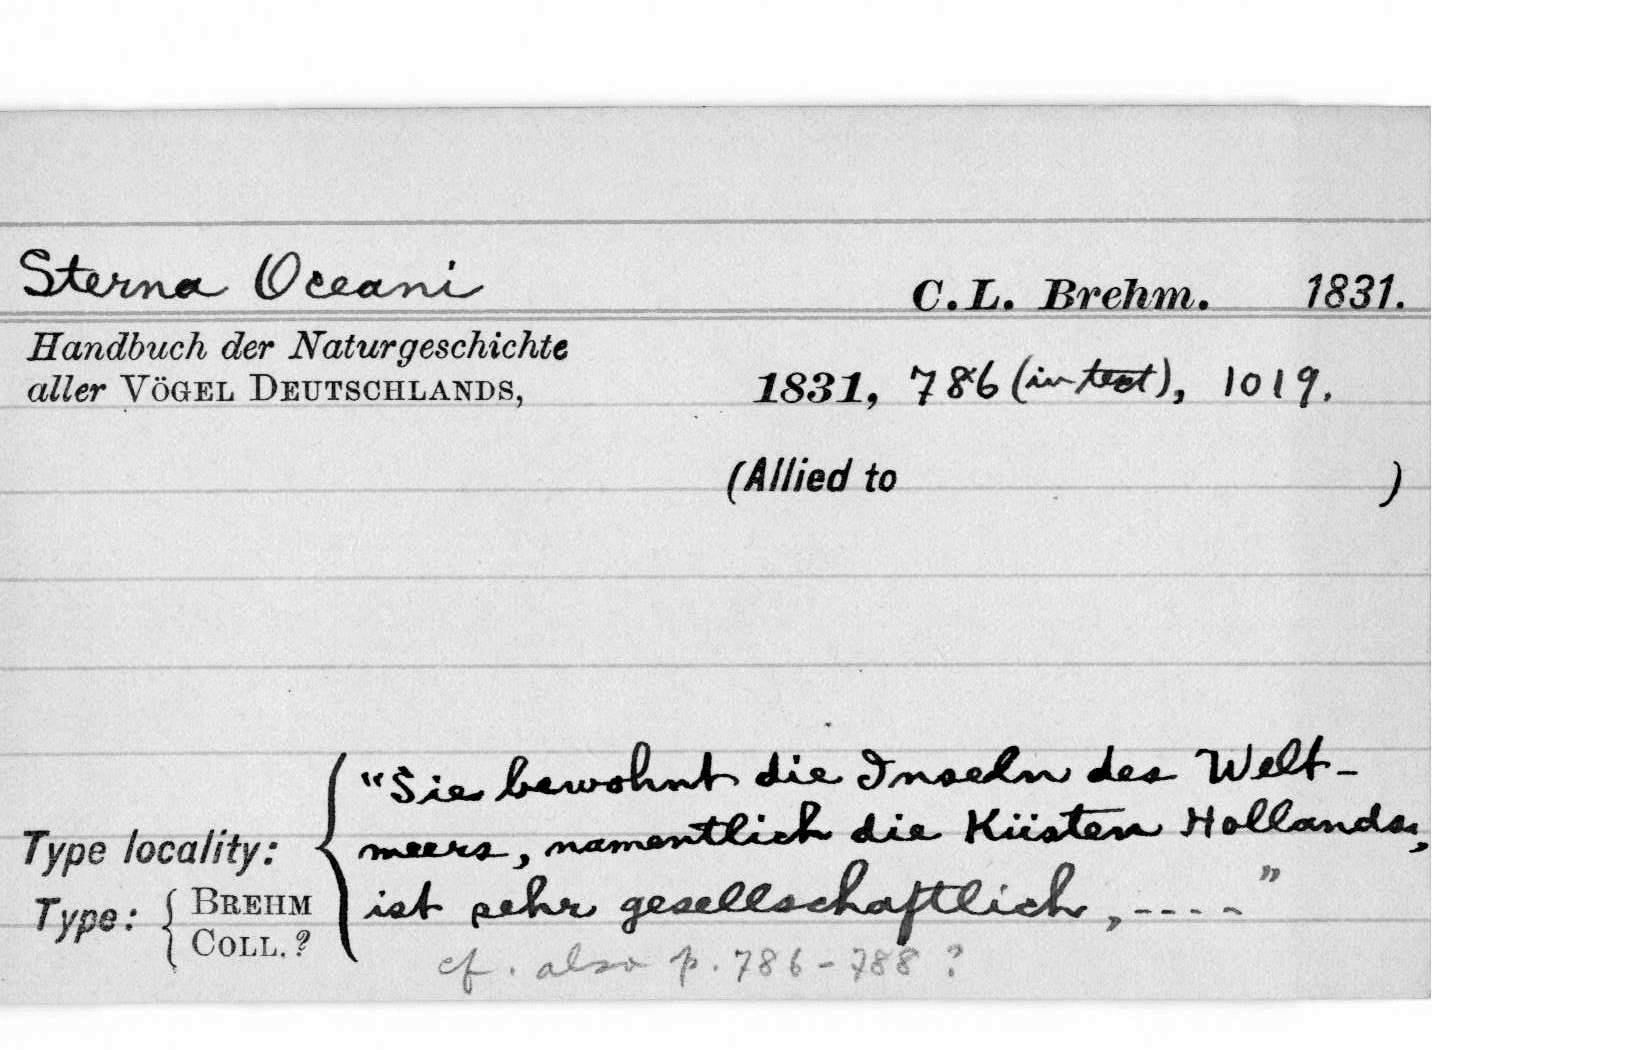 Sterna Oceani C.L. Brehm. 1831.
Handbuch der Naturgeschichte
aller VÖGEL DEUTSCHLANDS, 1831, 786 (in text), 1019.
(Allied to )
"Sie bewohnt die Inseln des Welt-
Type locality: meers, namentlich die Küsten Hollands,
Type: BREHM COLL.? ist sehr gesellschaftlich, ----"
cf. also p. 786-788?